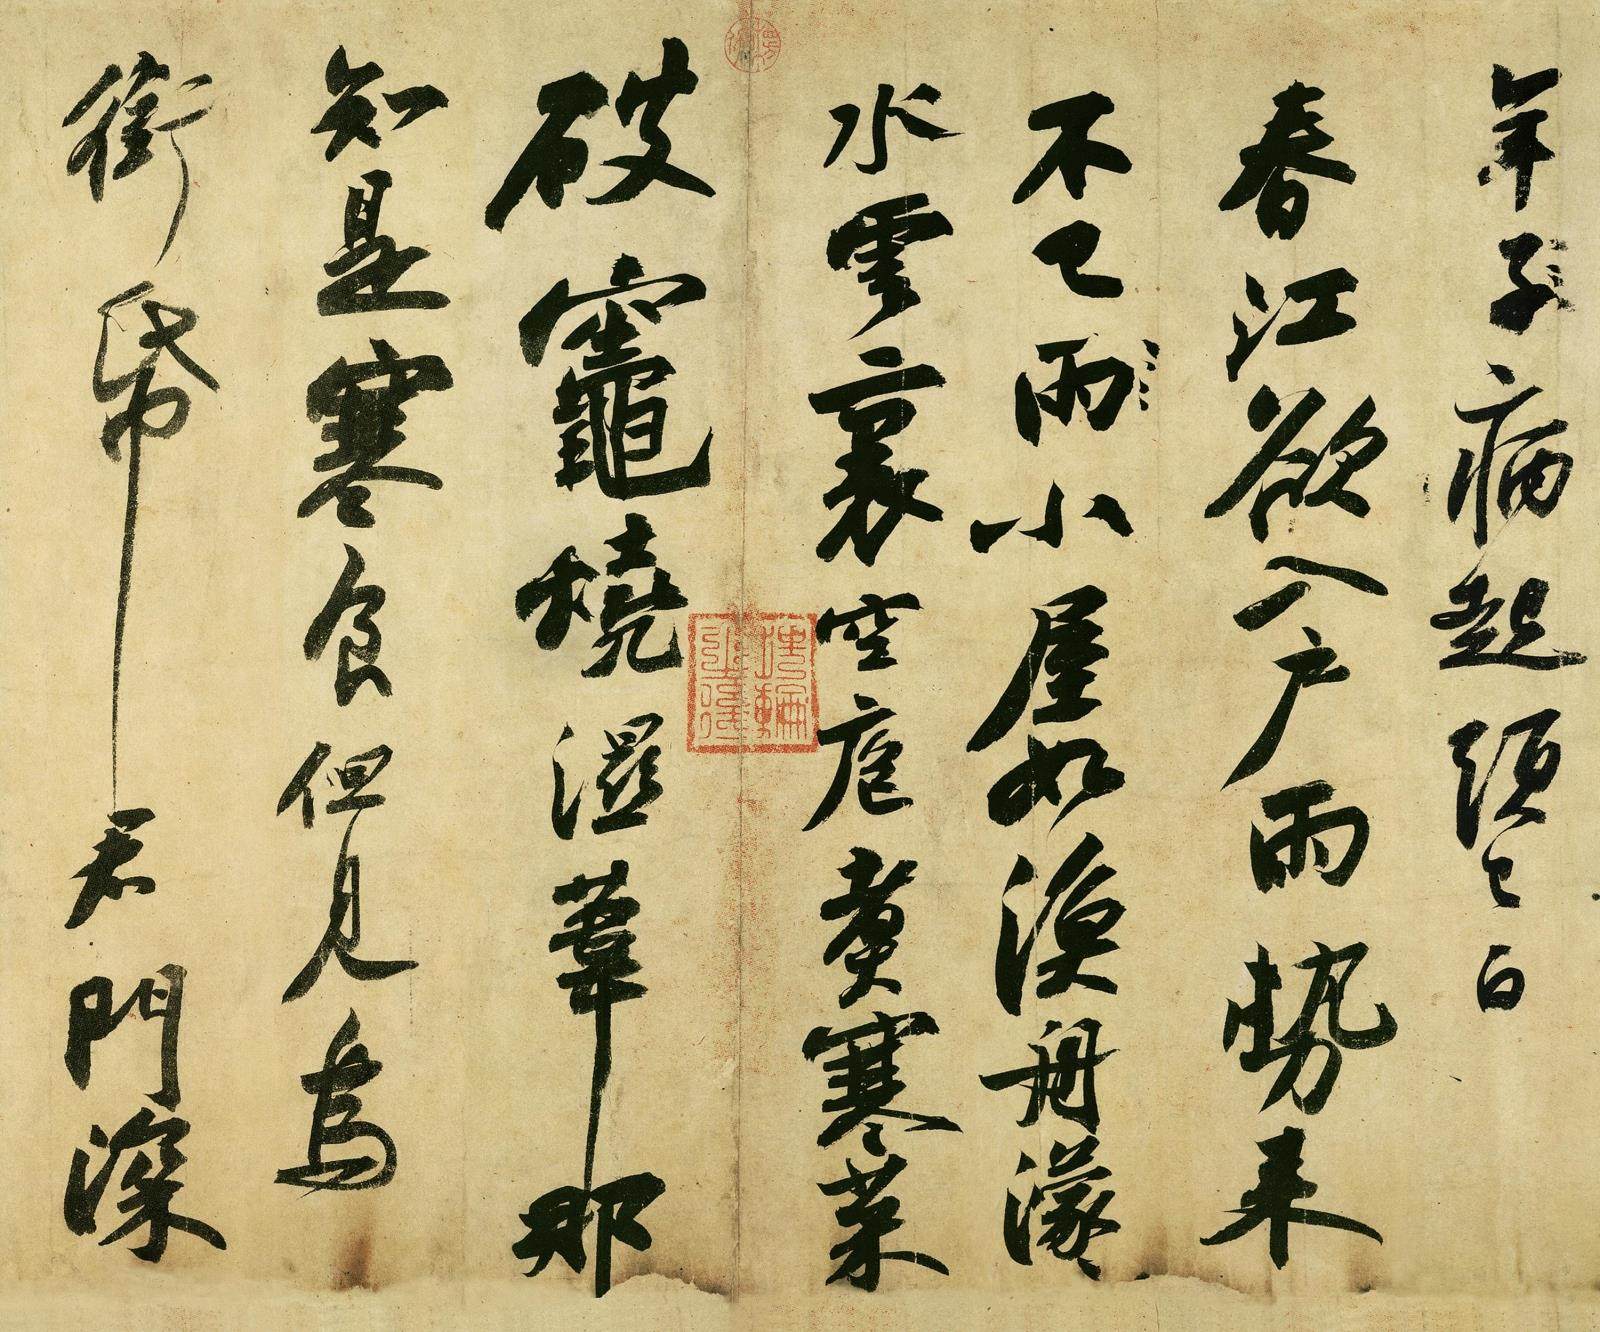 年子病起頭已白
春江欲入戶雨勢来
不已雨小屋如漁舟濛々
水雲裏空庖煮寒菜
破竈燒濕葦那
知是寒食但見烏
銜帋君門深